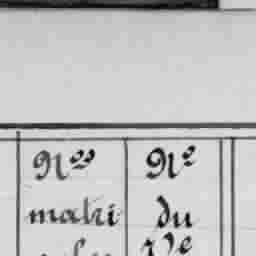 Nos No
matri du
Ve